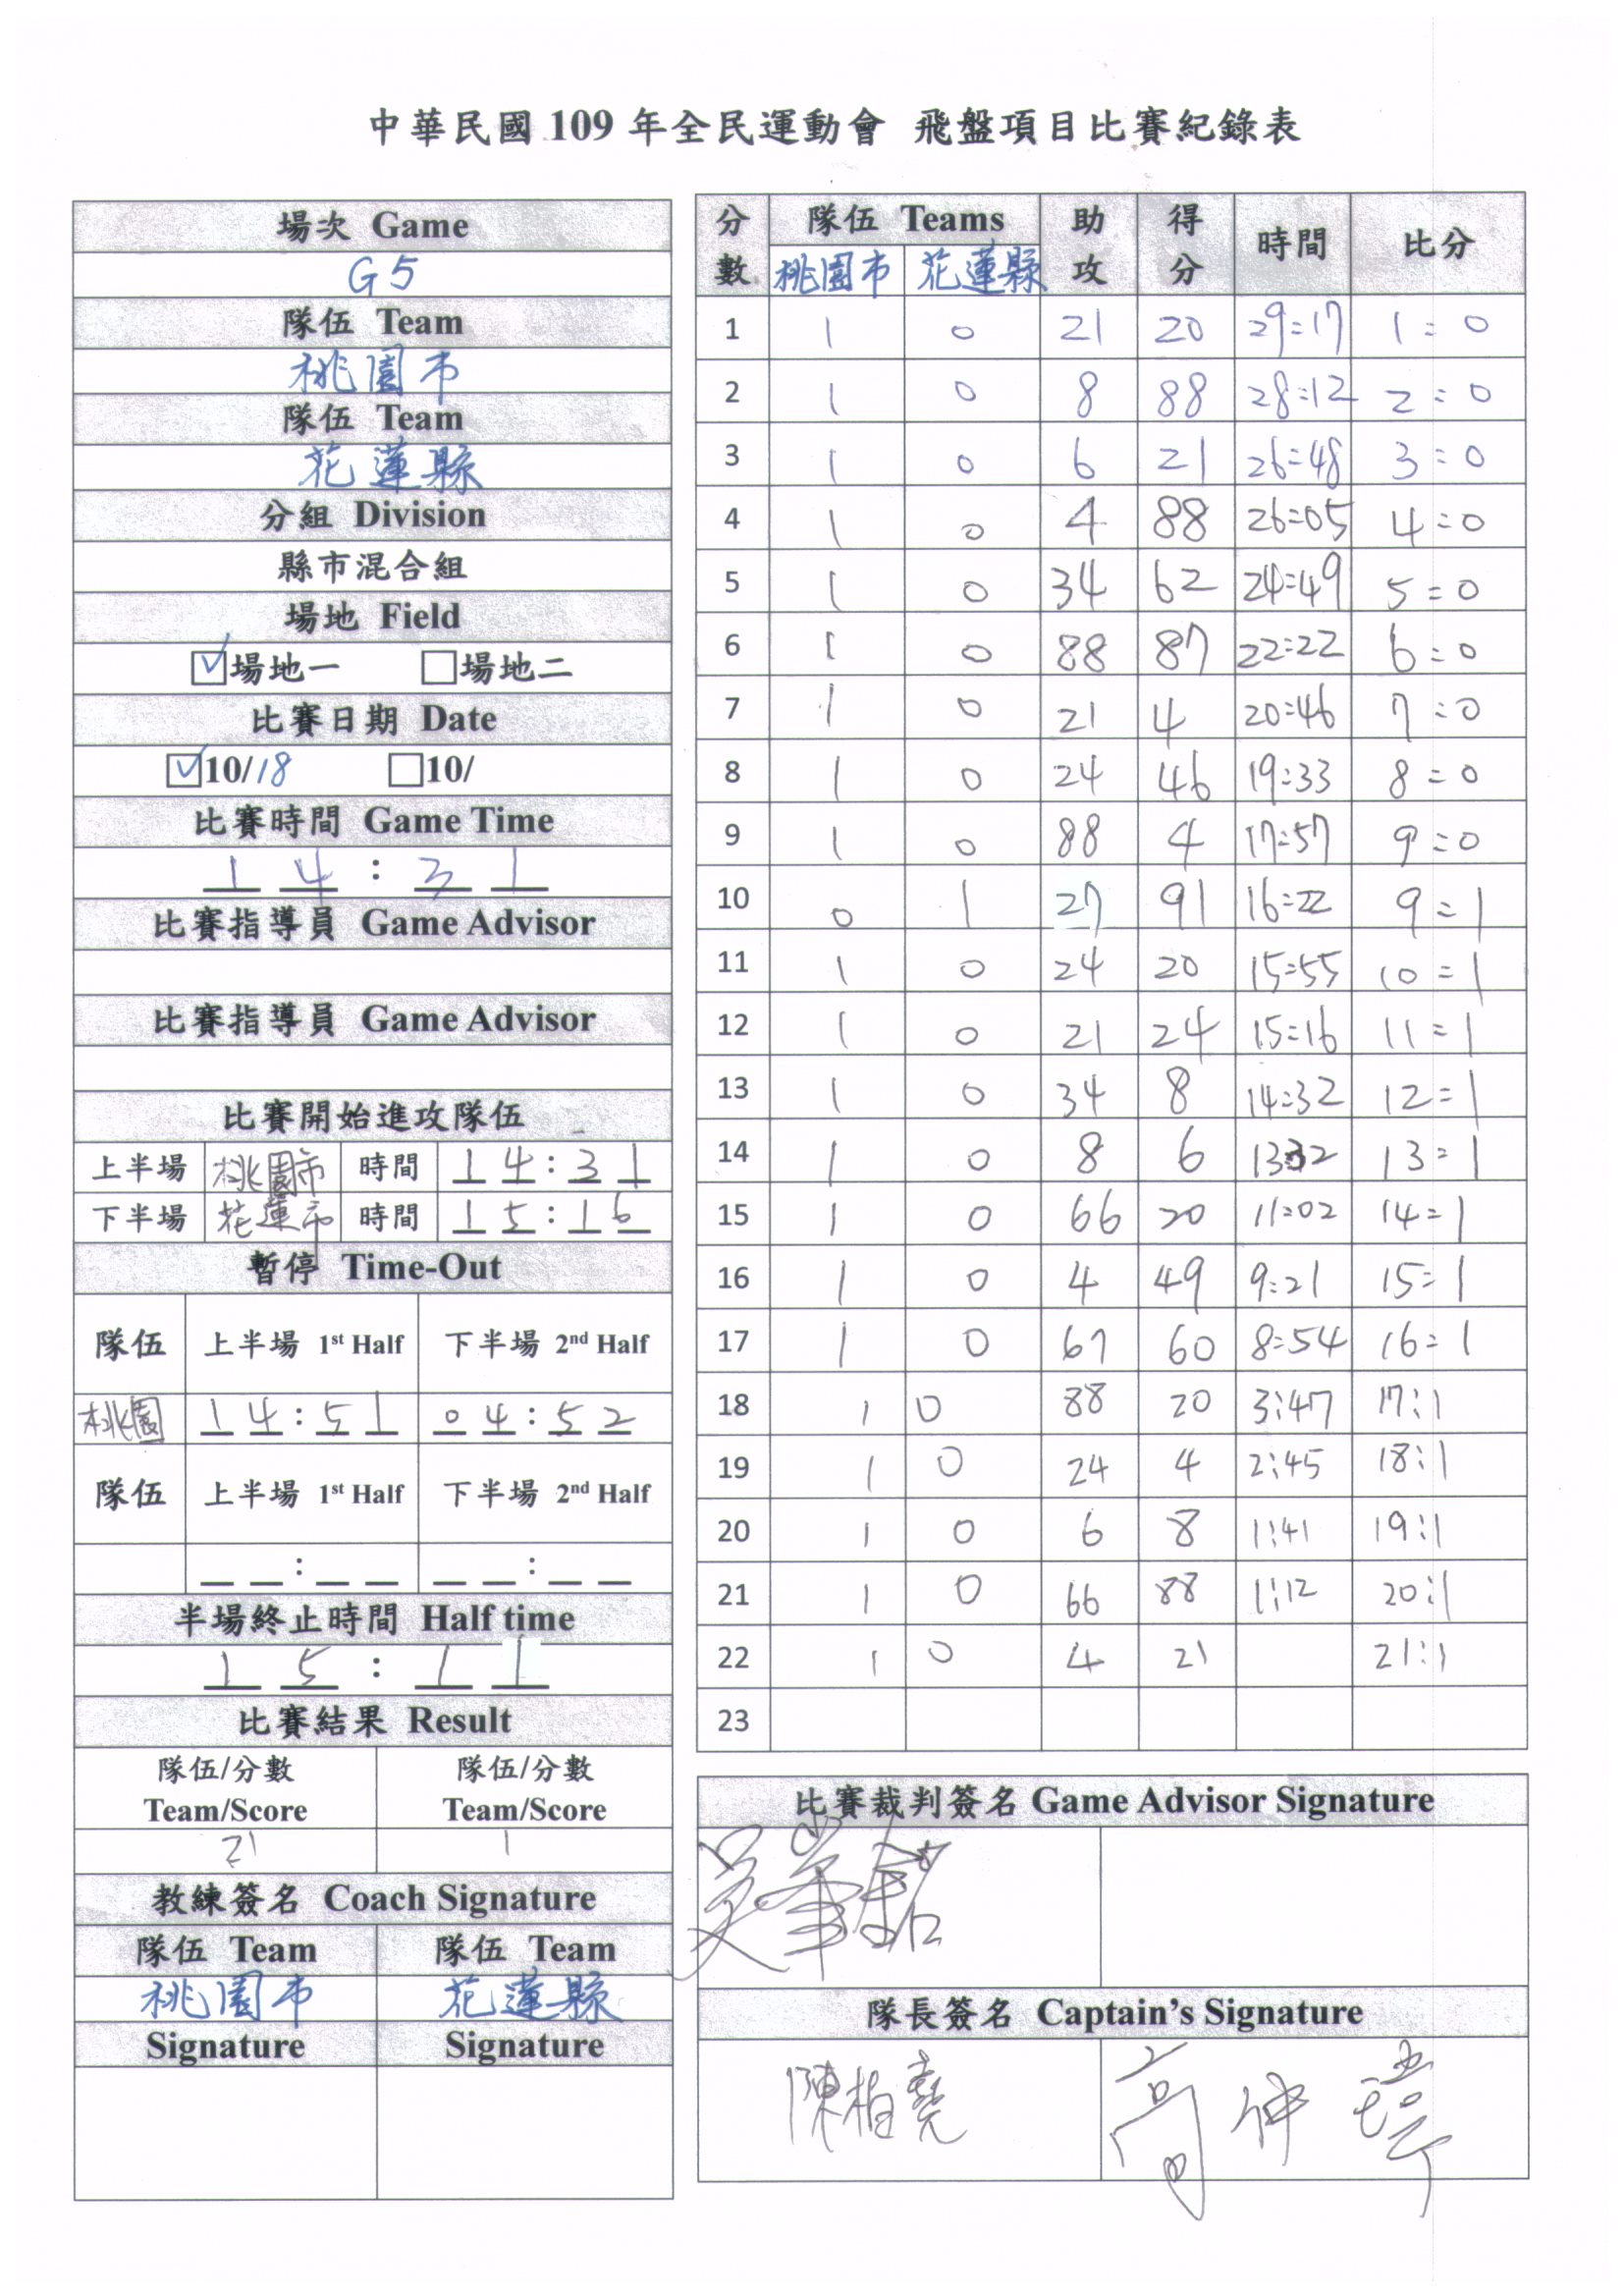 中華民國 109 年全民運動會 飛盤項目比賽紀錄表
場次 Game
G5
隊伍 Team
桃園市
隊伍 Team
花蓮縣
分組 Division
縣市混合組
場地 Field
☑場地一 □場地二
比賽日期 Date
☑10/18 □10/
比賽時間 Game Time
14:31
比賽指導員 Game Advisor
比賽指導員 Game Advisor
比賽開始進攻隊伍
上半場 桃園市 時間 14:31
下半場 花蓮市 時間 15:16
暫停 Time-Out
隊伍 上半場 1st Half 下半場 2nd Half
桃園 14:51 04:52
隊伍 上半場 1st Half 下半場 2nd Half
__:__ __:__
半場終止時間 Half time
15:11
比賽結果 Result
隊伍/分數 隊伍/分數
Team/Score Team/Score
21 1
教練簽名 Coach Signature
隊伍 Team 隊伍 Team
桃園市 花蓮縣
Signature Signature
分數 隊伍 Teams 助攻 得分 時間 比分
桃園市 花蓮縣
1 1 0 21 20 29=17 1=0
2 1 0 8 88 28:12 2=0
3 1 0 6 21 26=48 3=0
4 1 0 4 88 26=05 4=0
5 1 0 34 62 24=49 5=0
6 1 0 88 87 22=22 6=0
7 1 0 21 4 20=46 7=0
8 1 0 24 46 19=33 8=0
9 1 0 88 4 17=57 9=0
10 0 1 27 91 16=22 9=1
11 1 0 24 20 15=55 10=1
12 1 0 21 24 15=16 11=1
13 1 0 34 8 14=32 12=1
14 1 0 8 6 13:32 13=1
15 1 0 66 20 11=02 14=1
16 1 0 4 49 9=21 15=1
17 1 0 67 60 8=54 16=1
18 1 0 88 20 3:47 17:1
19 1 0 24 4 2:45 18:1
20 1 0 6 8 1:41 19:1
21 1 0 66 88 1:12 20:1
22 1 0 4 21 21:1
23
比賽裁判簽名 Game Advisor Signature
隊長簽名 Captain's Signature
陳柏堯 高仲瑋